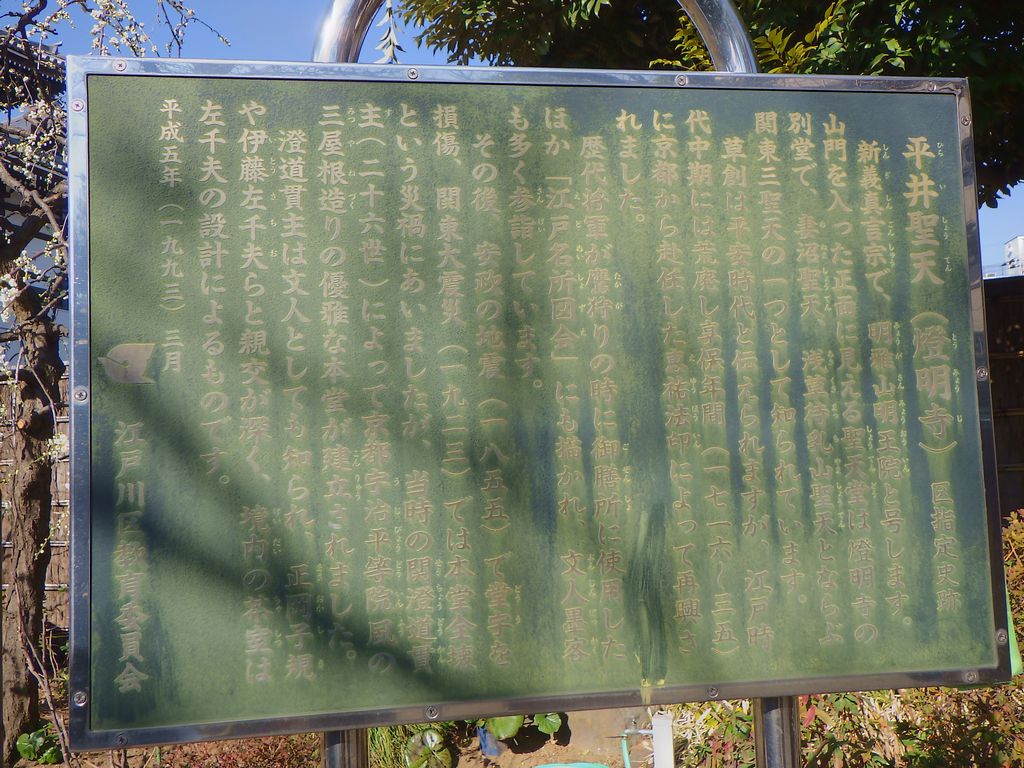 平井聖天（燈明寺） 区指定史跡
新義真言宗で、明雅山明王院と号します。
山門を入った正面に見える聖天堂は燈明寺の
別堂で、妻沼聖天、浅草待乳山聖天とならぶ
関東三聖天の一つとして知られています。
草創は平安時代と伝えられますが、江戸時
代中期には荒廃し享保年間（一七一六〜三五）
に京都から赴任した恵祐法印によって再興さ
れました。
歴代将軍が鷹狩りの時に御膳所に使用した
ほか「江戸名所図会」にも描かれ、文人墨客
も多く参詣しています。
その後、安政の地震（一八五五）で堂宇を
損傷、関東大震災（一九二三）では本堂全壊
という災禍にあいましたが、当時の関澄道貫
主（二十六世）によって京都宇治平等院風の
三屋根造りの優雅な本堂が建立されました。
澄道貫主は文人としても知られ、正岡子規
や伊藤左千夫らと親交が深く、境内の茶室は
左千夫の設計によるものです。
平成五年（一九九三）三月
江戸川区教育委員会